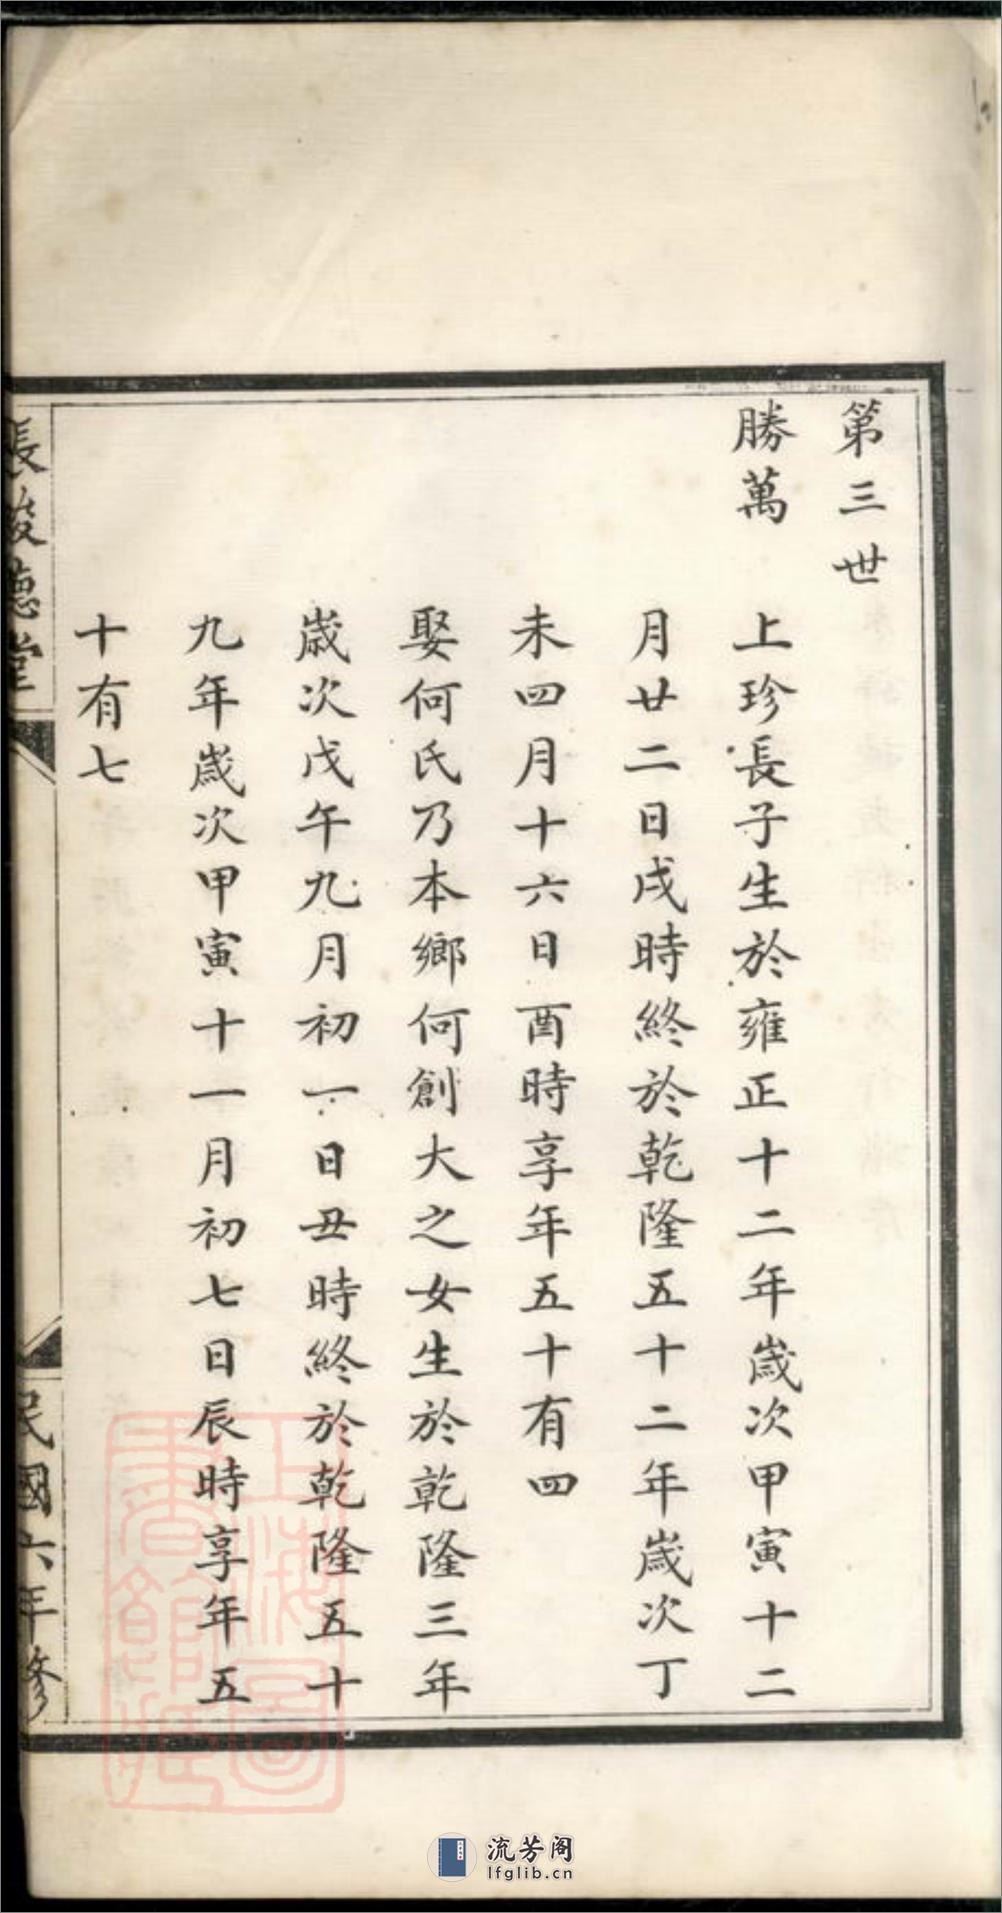 第三世
勝萬
上珍長子生於雍正十二年歲次甲寅十二
月廿二日戌時終於乾隆五十二年歲次丁
未四月十六日酉時享年五十有四
娶何氏乃本鄉何創大之女生於乾隆三年
歲次戊午九月初一日丑時終於乾隆五十
九年歲次甲寅十一月初七日辰時享年五
十有七
張
德堂
民國六年修
上海圖
書館藏
流芳阁
lfglib.cn